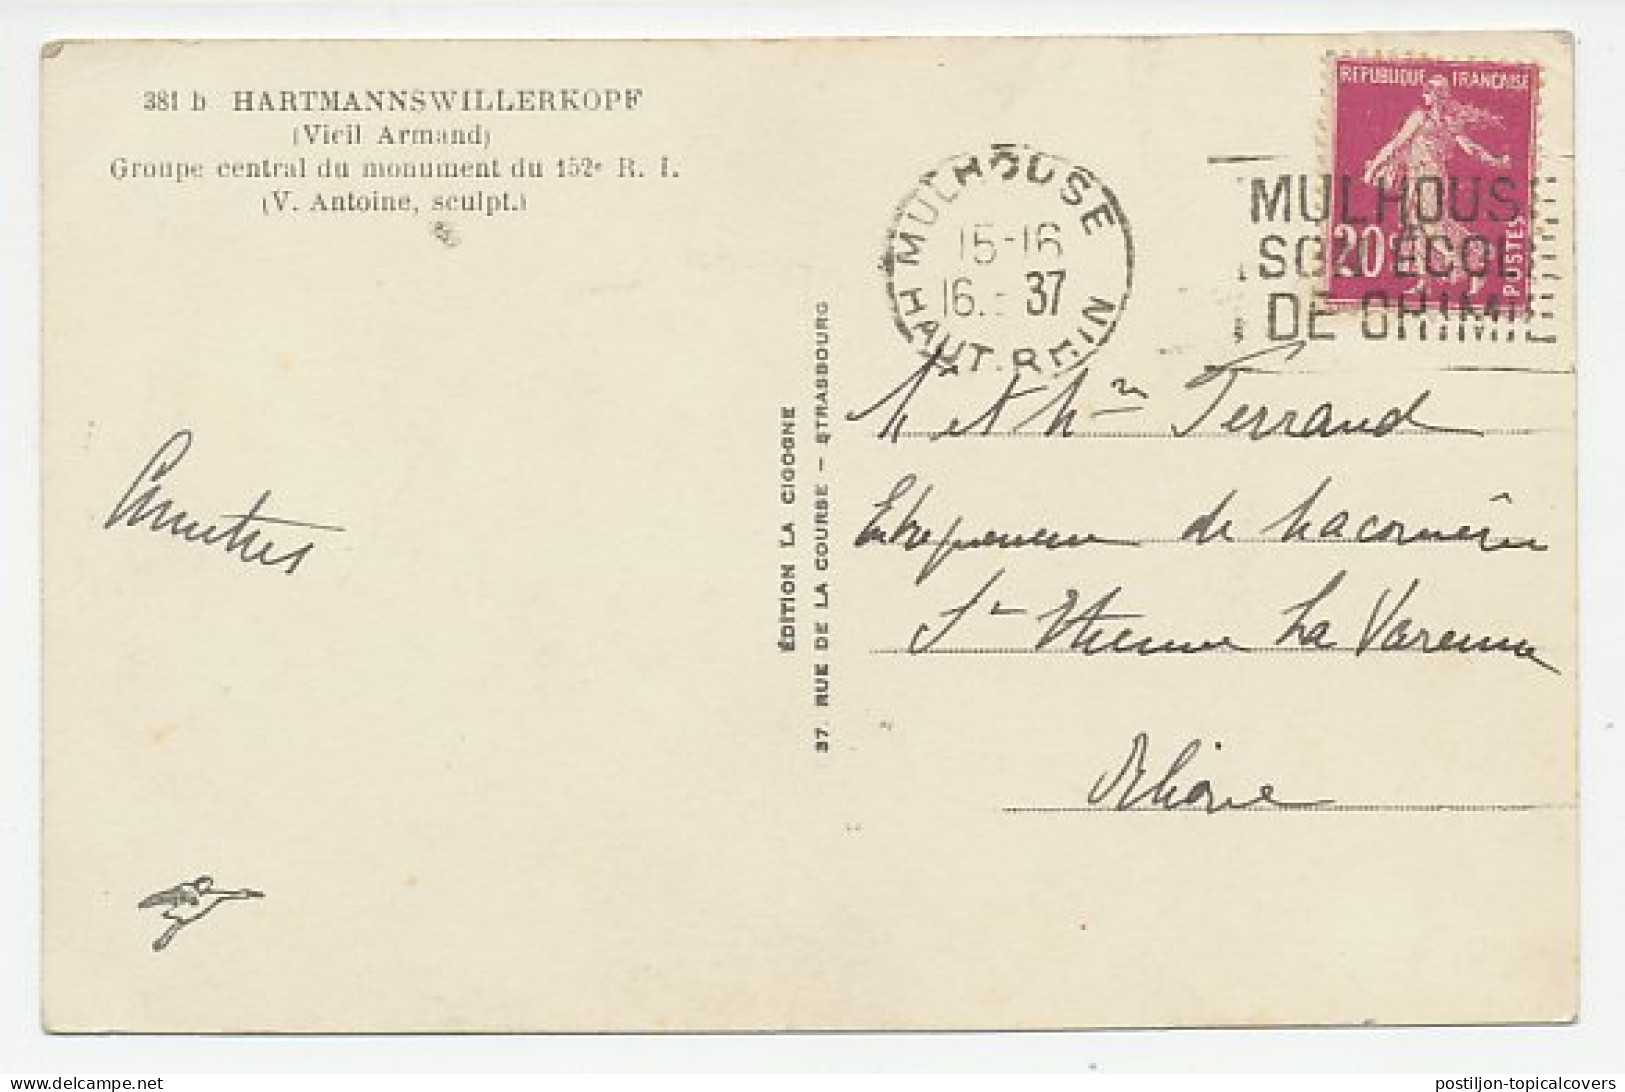 381 b HARTMANNSWILLERKOPF
(Vieil Armand)
Groupe central du monument du 152e R. I.
(V. Antoine, sculpt.)
MULHOUSE
15-16
16. 37
HAUT-RHIN
REPUBLIQUE FRANÇAISE
20c
POSTES
MULHOUS
SON ÉCOL
DE CHIMI
ÉDITION LA CIGOGNE
37, RUE DE LA COURSE - STRASBOURG
M et Mme Ferrand
Entrepreneur de Maçonnerie
St Etienne La Varenne
Rhône
postiljon-topicalcovers
delcampe.net